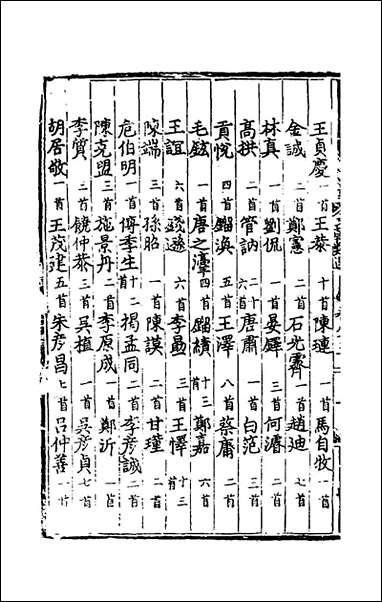 王貞慶一首王恭十首陳璉一首馬自牧一首
金誠二首鄭憲二首石光霽一首趙迪七首
林真一首劉侃一首晏鐸三首何濬二首
高拱二首管訥二十六首唐肅一首白范三首
貢悅四首鎦渙五首王澤八首蔡庸二首
毛鉉一首唐之淳四首鎦績十三首鄭嘉六首
王誼六首錢遜六首李勗三首王懌十三首
陳端三首孫昭一首陳謨二首甘瑾二首
危伯明一首傅季生十二首揭孟同二首李彥誠一首
陳克盟三首施景丹二首李原成一首鄭沂一首
李質二首饒仲恭三首吳植一首吳彥貞七首
胡居敬一首王茂建五首朱彥昌七首呂仲善一首